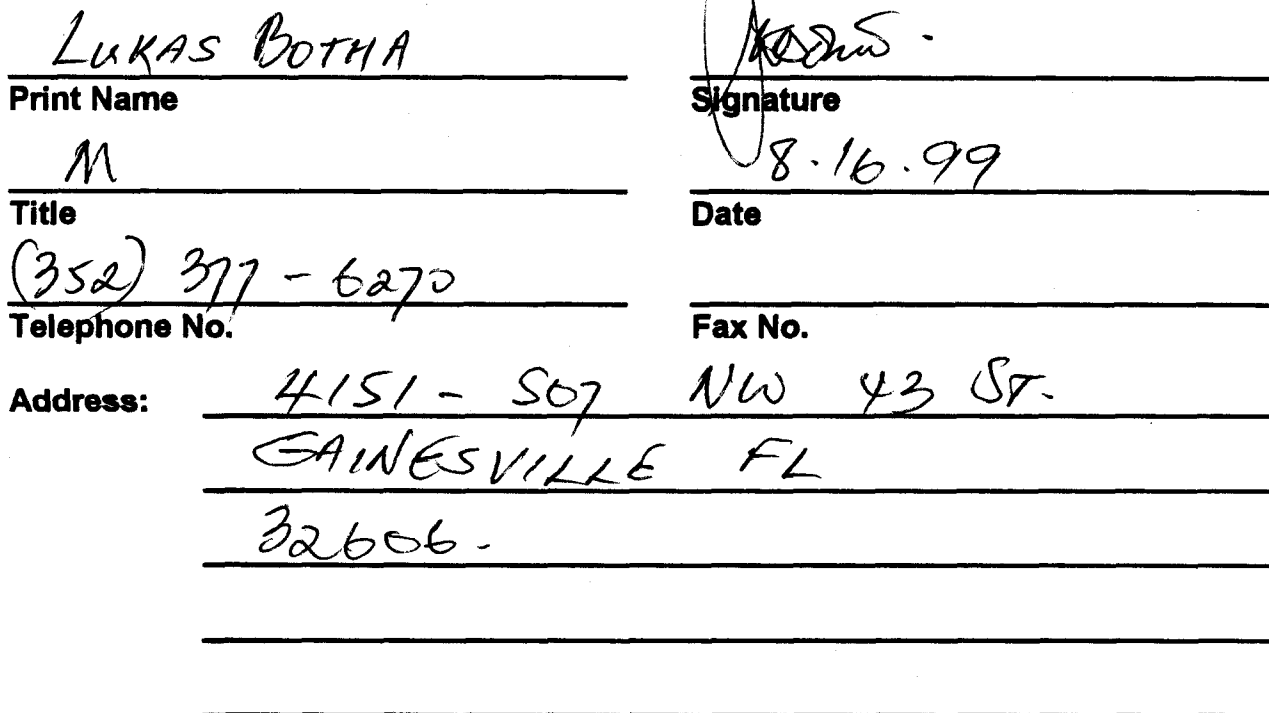 LUKAS BOTHA
Print Name Signature
M 8.16.99
Title Date
(352) 377-6270
Telephone No. Fax No.
Address: 4151-507 NW 43 ST.
GAINESVILLE FL
32606.